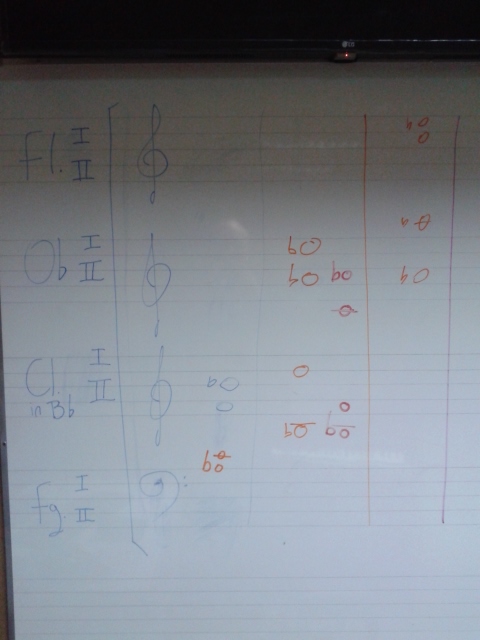 LG
Fl. I
II
Ob I
II
Cl. I
in Bb II
fg. I
II